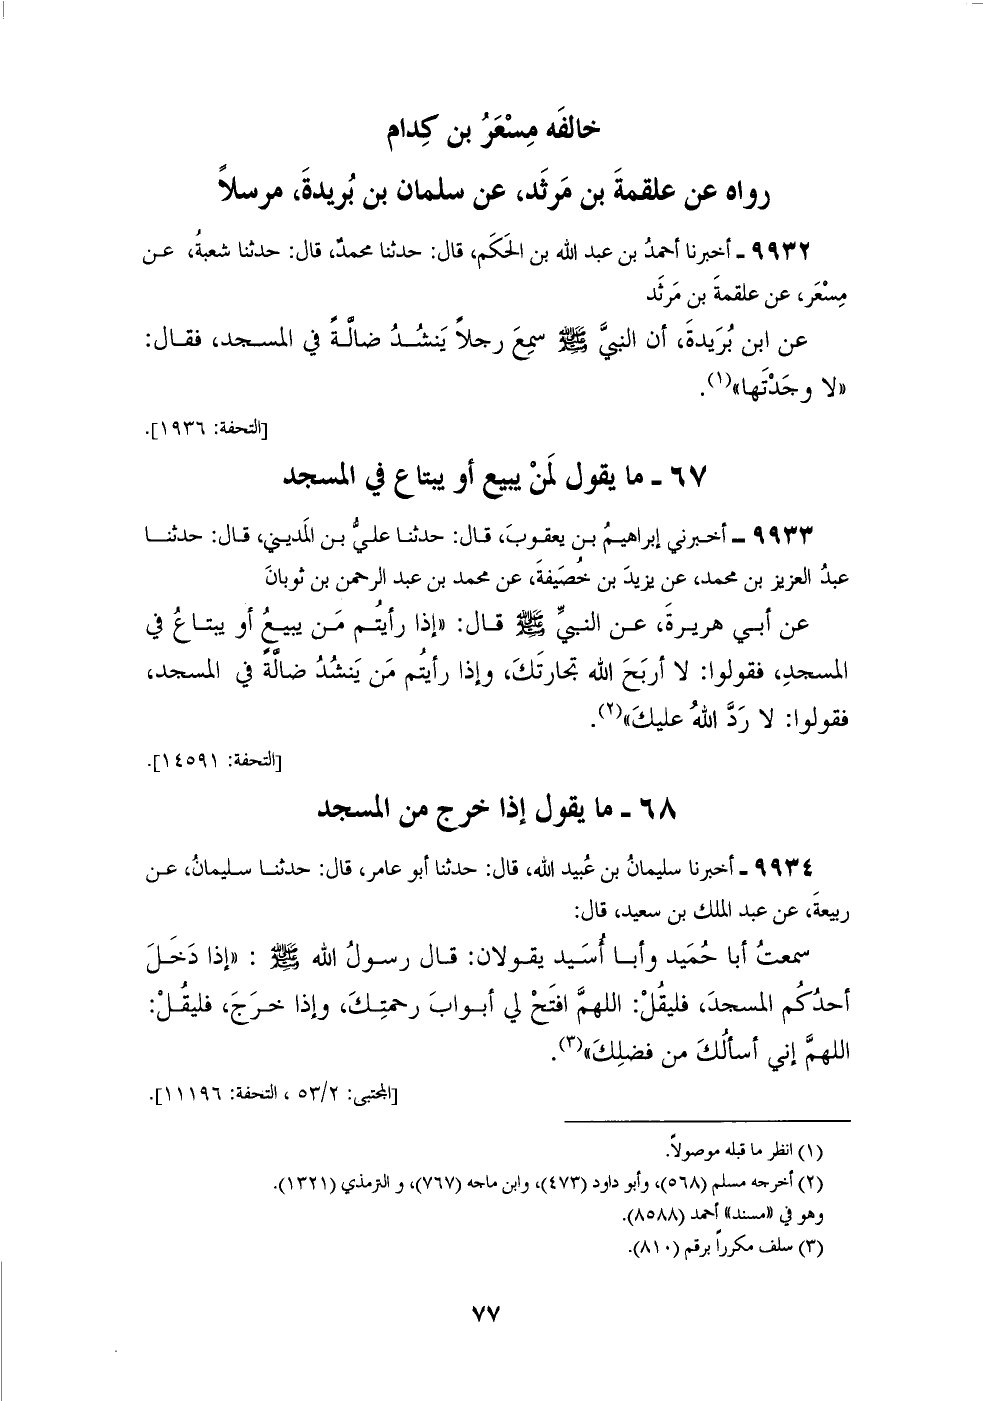 خالفَه مِسْعَرُ بن كِدام
رواه عن علقمةَ بن مَرثَد، عن سلمان بن بُريدةَ، مرسلاً
٩٩٣٢ ـ أخبرنا أحمدُ بن عبد الله بن الحَكَم، قال: حدثنا محمدٌ، قال: حدثنا شعبةُ، عن
مِسْعَر، عن علقمةَ بن مَرثَد
عن ابن بُرَيدةَ، أن النبيَّ ﷺ سمِعَ رجلاً يَنشُدُ ضالَّةً في المسجد، فقال:
«لا وجَدْتَها»(١).
[التحفة: ١٩٣٦].
٦٧ ـ ما يقول لمَنْ يبيع أو يبتاع في المسجد
٩٩٣٣ ـ أخبرني إبراهيمُ بن يعقوبَ، قال: حدثنا عليُّ بن المَديني، قال: حدثنا
عبدُ العزيز بن محمد، عن يزيدَ بن خُصَيفةَ، عن محمد بن عبد الرحمن بن ثوبانَ
عن أبي هريرةَ، عن النبيِّ ﷺ قال: «إذا رأيتُم مَن يبيعُ أو يبتاعُ في
المسجدِ، فقولوا: لا أربَحَ الله تجارتَكَ، وإذا رأيتُم مَن يَنشُدُ ضالَّةً في المسجد،
فقولوا: لا رَدَّ اللهُ عليكَ»(٢).
[التحفة: ١٤٥٩١].
٦٨ ـ ما يقول إذا خرج من المسجد
٩٩٣٤ ـ أخبرنا سليمانُ بن عُبيد الله، قال: حدثنا أبو عامر، قال: حدثنا سليمانُ، عن
ربيعةَ، عن عبد الملك بن سعيد، قال:
سمعتُ أبا حُمَيد وأبا أُسَيد يقولان: قال رسولُ الله ﷺ : «إذا دَخَلَ
أحدُكُم المسجدَ، فليقُلْ: اللهمَّ افتَحْ لي أبوابَ رحمتِكَ، وإذا خرَجَ، فليقُلْ:
اللهمَّ إني أسألُكَ من فضلِكَ»(٣).
[المجتبى: ٥٣/٢ ، التحفة: ١١١٩٦].
(١) انظر ما قبله موصولاً.
(٢) أخرجه مسلم (٥٦٨)، وأبو داود (٤٧٣)، وابن ماجه (٧٦٧)، و الترمذي (١٣٢١).
وهو في «مسند» أحمد (٨٥٨٨).
(٣) سلف مكرراً برقم (٨١٠).
٧٧